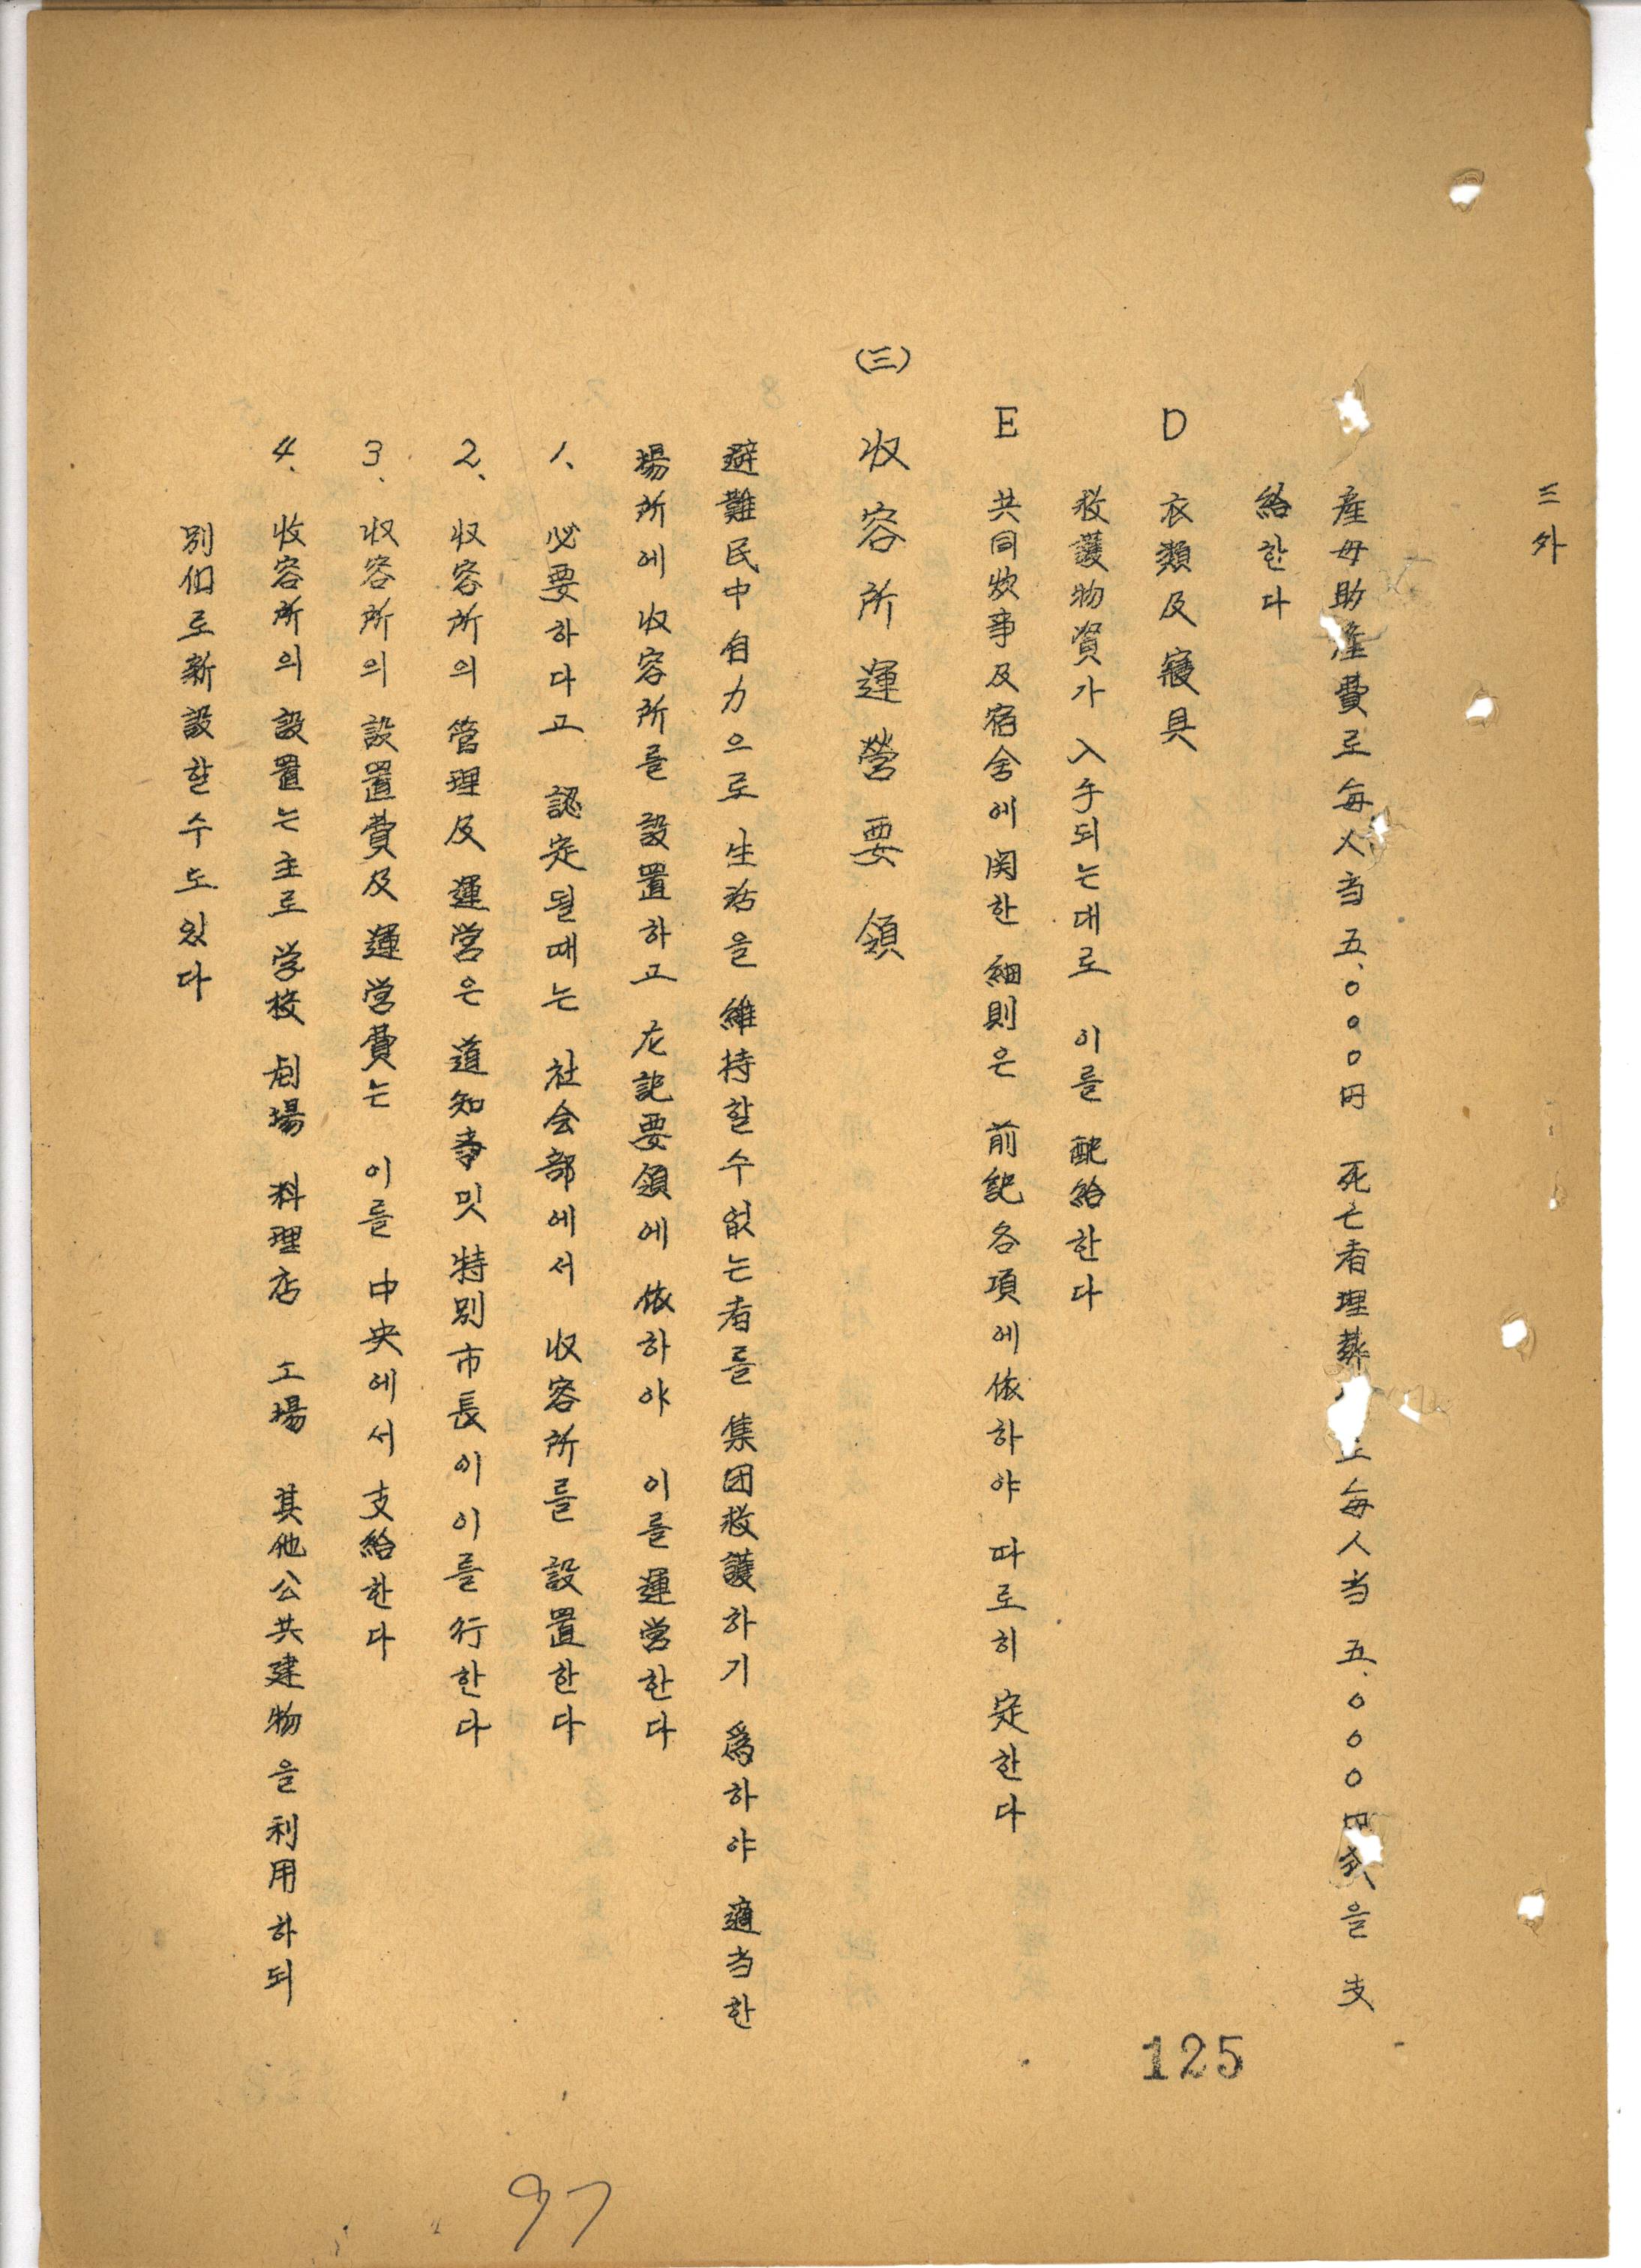 三外
産母助産費로每人当 五.〇〇〇円 死亡者埋葬 每人当 五.〇〇〇円式을 支
給한다
D 衣類及寢具
救護物資가 入手되는대로 이를 配給한다
E 共同炊事及宿舍에 関한 細則은 前記各項에 依하야 따로히 定한다
(三) 収容所運營要領
避難民中自力으로 生活을 維持할수없는者를 集団救護하기 爲하야 適当한
場所에 収容所를 設置하고 左記要領에 依하야 이를 運営한다
1、必要하다고 認定될때는 社会部에서 収容所를 設置한다
2、収容所의 管理及運営은 道知事및 特別市長이 이를 行한다
3、収容所의 設置費及運営費는 이를 中央에서 支給한다
4、收容所의 設置는主로 学校 劇場 料理店 工場 其他公共建物을 利用하되
別個로新設할수도있다
125
97